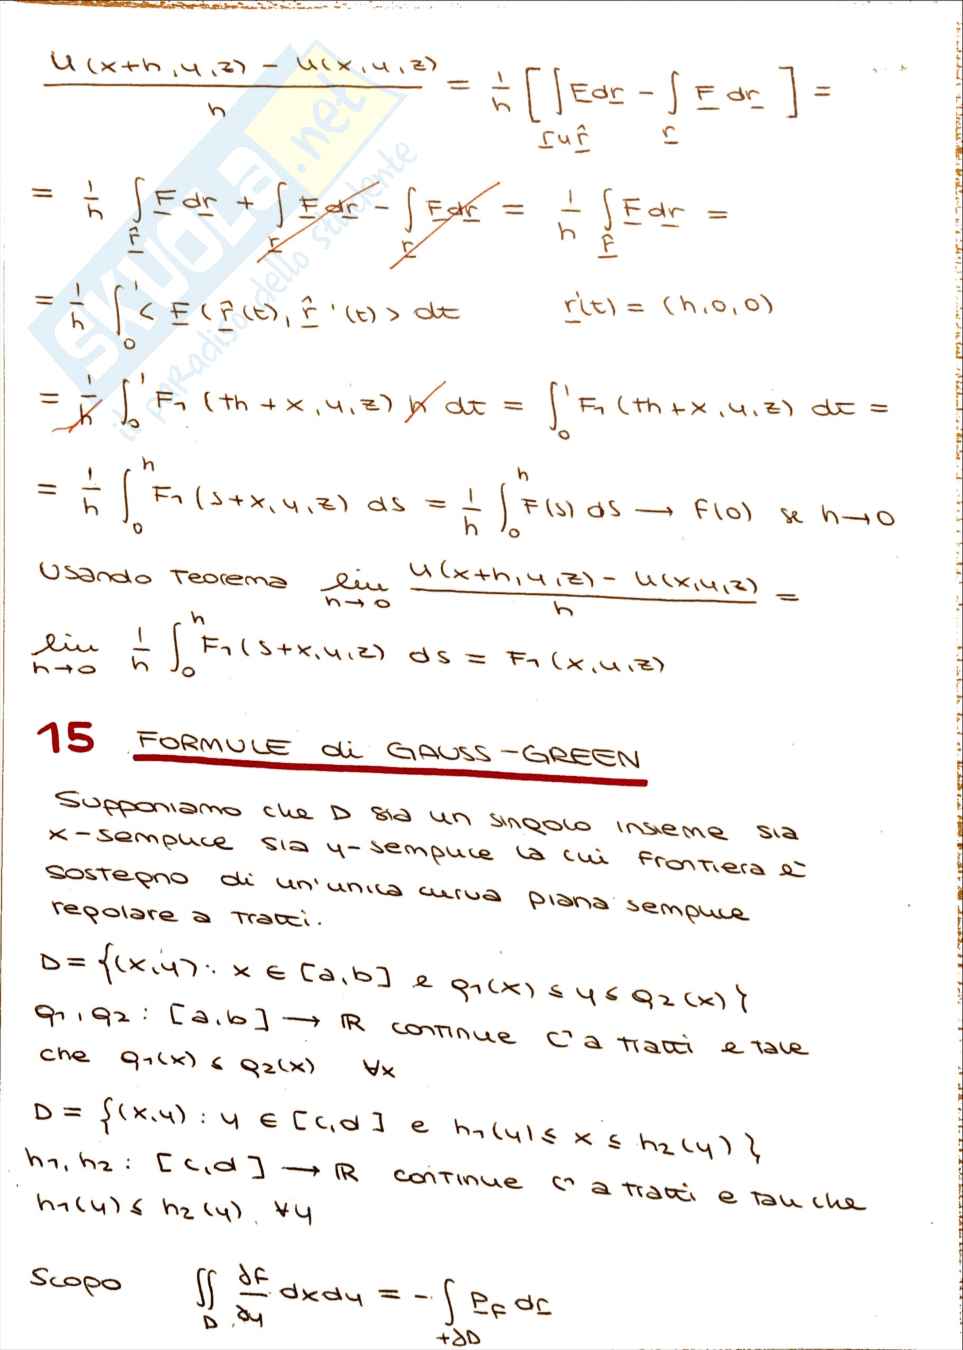 u(x+h,y,z) - u(x,y,z) / h = 1/h [ ∫_{r∪r̂} F dr - ∫_r F dr ] =
= 1/h ∫_r̂ F dr + ∫_r F dr - ∫_r F dr = 1/h ∫_r̂ F dr =
= 1/h ∫_0^1 < F(r̂(t), r̂'(t) > dt r'(t) = (h,0,0)
= 1/h ∫_0^1 F1 (th+x,y,z) h dt = ∫_0^1 F1 (th+x,y,z) dt =
= 1/h ∫_0^h F1 (s+x,y,z) ds = 1/h ∫_0^h F(s) ds → F(0) se h→0
Usando Teorema lim_{h→0} u(x+h,y,z) - u(x,y,z) / h =
lim_{h→0} 1/h ∫_0^h F1(s+x,y,z) ds = F1(x,y,z)
15 FORMULE di GAUSS-GREEN
Supponiamo che D sia un singolo insieme sia
x-semplice sia y-semplice la cui frontiera è
sostegno di un'unica curva piana semplice
regolare a tratti.
D = {(x,y): x ∈ [a,b] e g1(x) ≤ y ≤ g2(x)}
g1, g2 : [a,b] → ℝ continue C¹ a tratti e tale
che g1(x) ≤ g2(x) ∀x
D = {(x,y) : y ∈ [c,d] e h1(y) ≤ x ≤ h2(y)}
h1, h2 : [c,d] → ℝ continue C¹ a tratti e tali che
h1(y) ≤ h2(y). ∀y
Scopo ∬_D ∂F/∂y dxdy = - ∫_{+∂D} P_F dr
SKUOLA.net
il paradiso dello studente